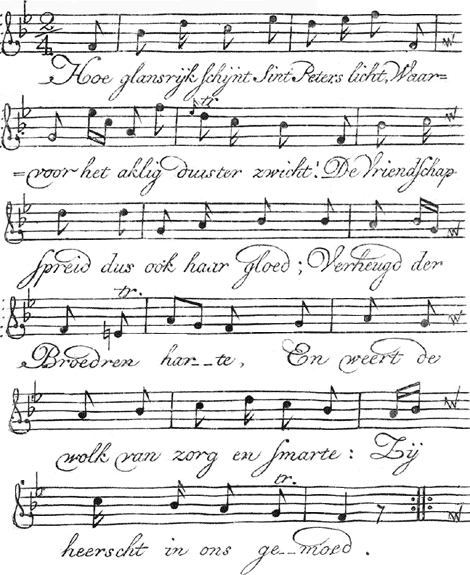 2
4
Hoe glansrijk schijnt Sint Peters licht, Waar=
tr.
=voor het aklig duister zwicht! De Vriendschap
spreid dus ook haar gloed; Verheugd der
tr.
Broedren har--te, En weert de
wolk van zorg en smarte: Zij
tr.
heerscht in ons ge--moed.